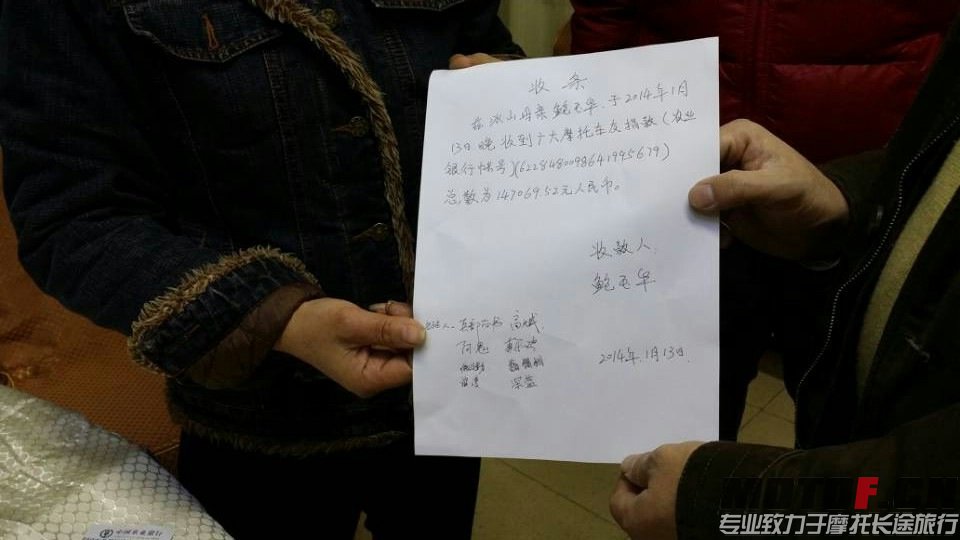 收条
在冰山母亲鲍玉华.于2014年1月
13日晚收到广大摩托车友捐款(农业
银行帐号)(6228480098641995679)
总数为147069.52元人民币。
收款人
鲍玉华
高斌
阿鬼
2014年.1月13日.
中国农业银行
MOTOF.CN
专业致力于摩托长途旅行